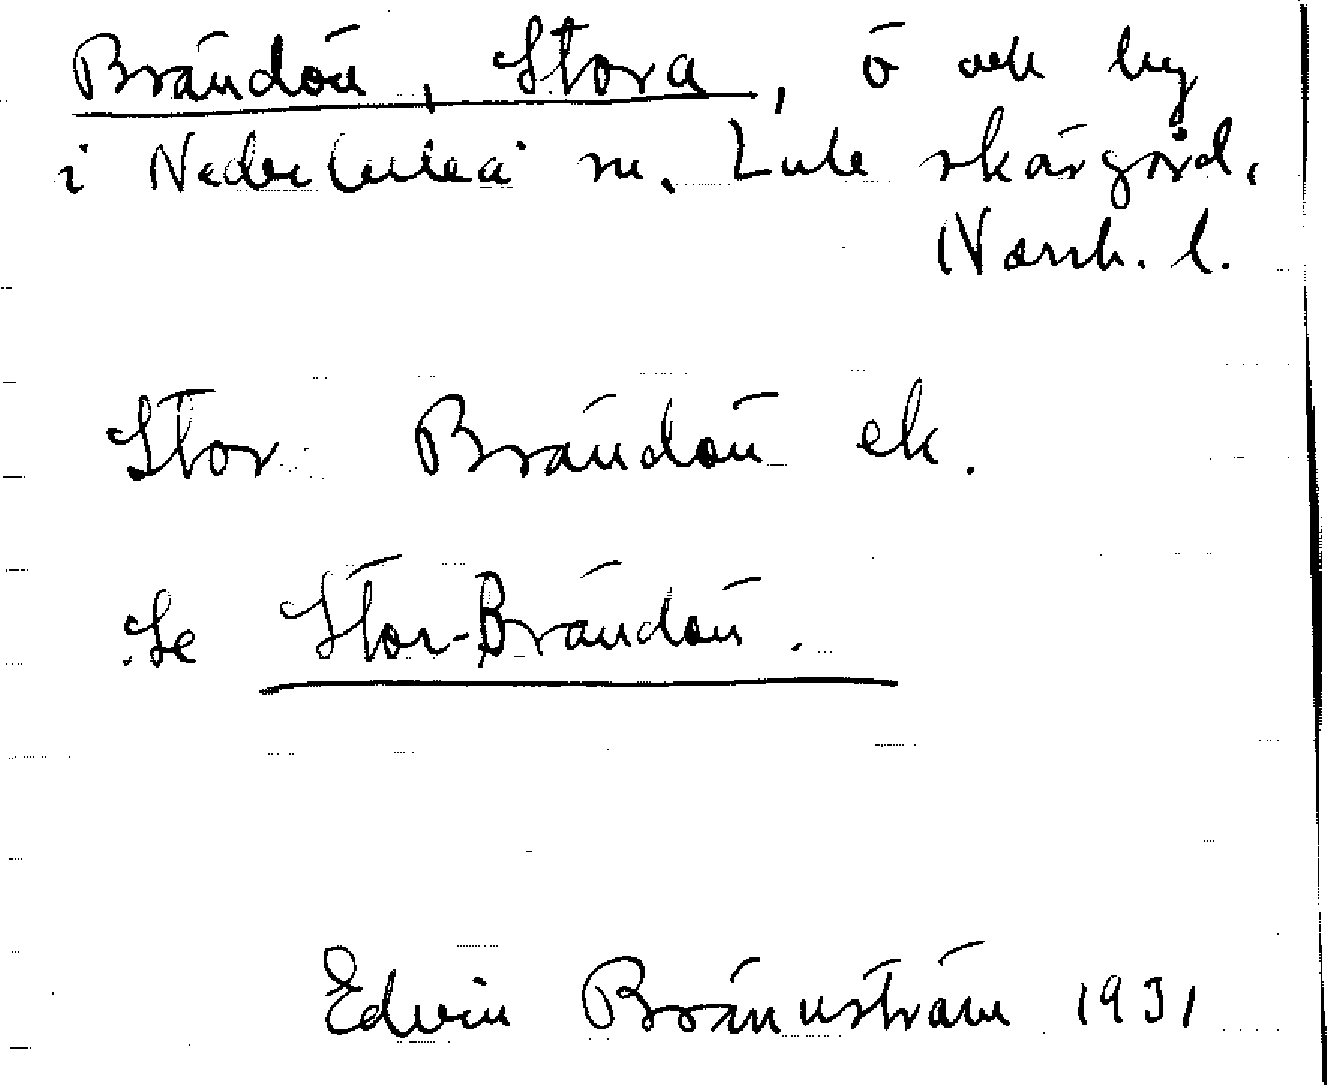 Brändön, Stora, ö och by
i Nederluleå sn. Lule skärgård,
Norrb. l.
Stor Brändön ek.
Se Stor-Brändön.
Edvin Brännström 1931